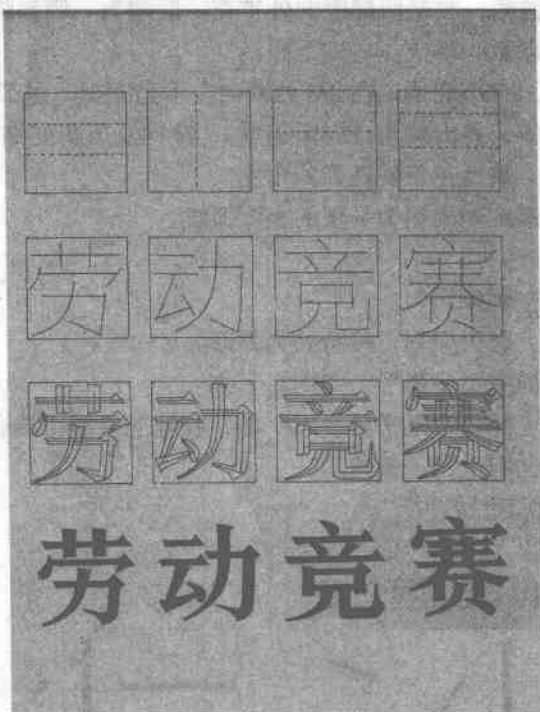 劳动竞赛
劳动竞赛
劳动竞赛